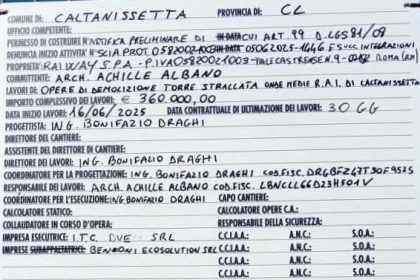 COMUNE DI: CALTANISSETTA PROVINCIA DI: CL
UFFICIO COMPETENTE:
PERMESSO DI COSTRUIRE N° NOTIFICA PRELIMINARE DI IN DATA CUI ART. 99 D.LGS 81/08
DENUNCIA INIZIO ATTIVITA' N° SCIA PROT. 05062025-1446 E SUCC. INTEGRAZIONI
PROPRIETA': RAI WAY S.P.A - P.IVA 05820021003 - VIALE CASTRENSE N.9 - (RM)
COMMITTENTE: ARCH. ACHILLE ALBANO
LAVORI DI: OPERE DI DEMOLIZIONE TORRE STRALLATA ONDE MEDIE R.A.I. DI CALTANISSETTA
IMPORTO COMPLESSIVO DEI LAVORI: € 360.000,00
DATA INIZIO LAVORI 16/06/2025 DATA CONTRATTUALE DI ULTIMAZIONE DEI LAVORI: 30 GG
PROGETTISTA: ING. BONIFAZIO DRAGHI
DIRETTORE DEL CANTIERE:
ASSISTENTE DEL DIRETTORE DI CANTIERE:
DIRETTORE DEI LAVORI: ING. BONIFAZIO DRAGHI
COORDINATORE PER LA PROGETTAZIONE: ING. BONIFAZIO DRAGHI COD.FISC. DRGBFZ47T30F952S
RESPONSABILE DEI LAVORI: ARCH. ACHILLE ALBANO COD.FISC. LBNCLL66D23H501V
COORDINATORE PER L'ESECUZIONE: ING BONIFAZIO DRAGHI CAPO CANTIERE:
CALCOLATORE STATICO: CALCOLATORE OPERE C.A.:
COLLAUDATORE IN CORSO D'OPERA: RESPONSABILE DELLA SICUREZZA:
IMPRESA ESECUTRICE: I.T.C. DUE SRL C.C.I.A.A.: A.N.C.: S.O.A.:
IMPRESA SUBAPPALTATRICE: BENZONI ECOSOLUTION SRL C.C.I.A.A.: A.N.C.: S.O.A.:
C.C.I.A.A.: A.N.C.: S.O.A.: